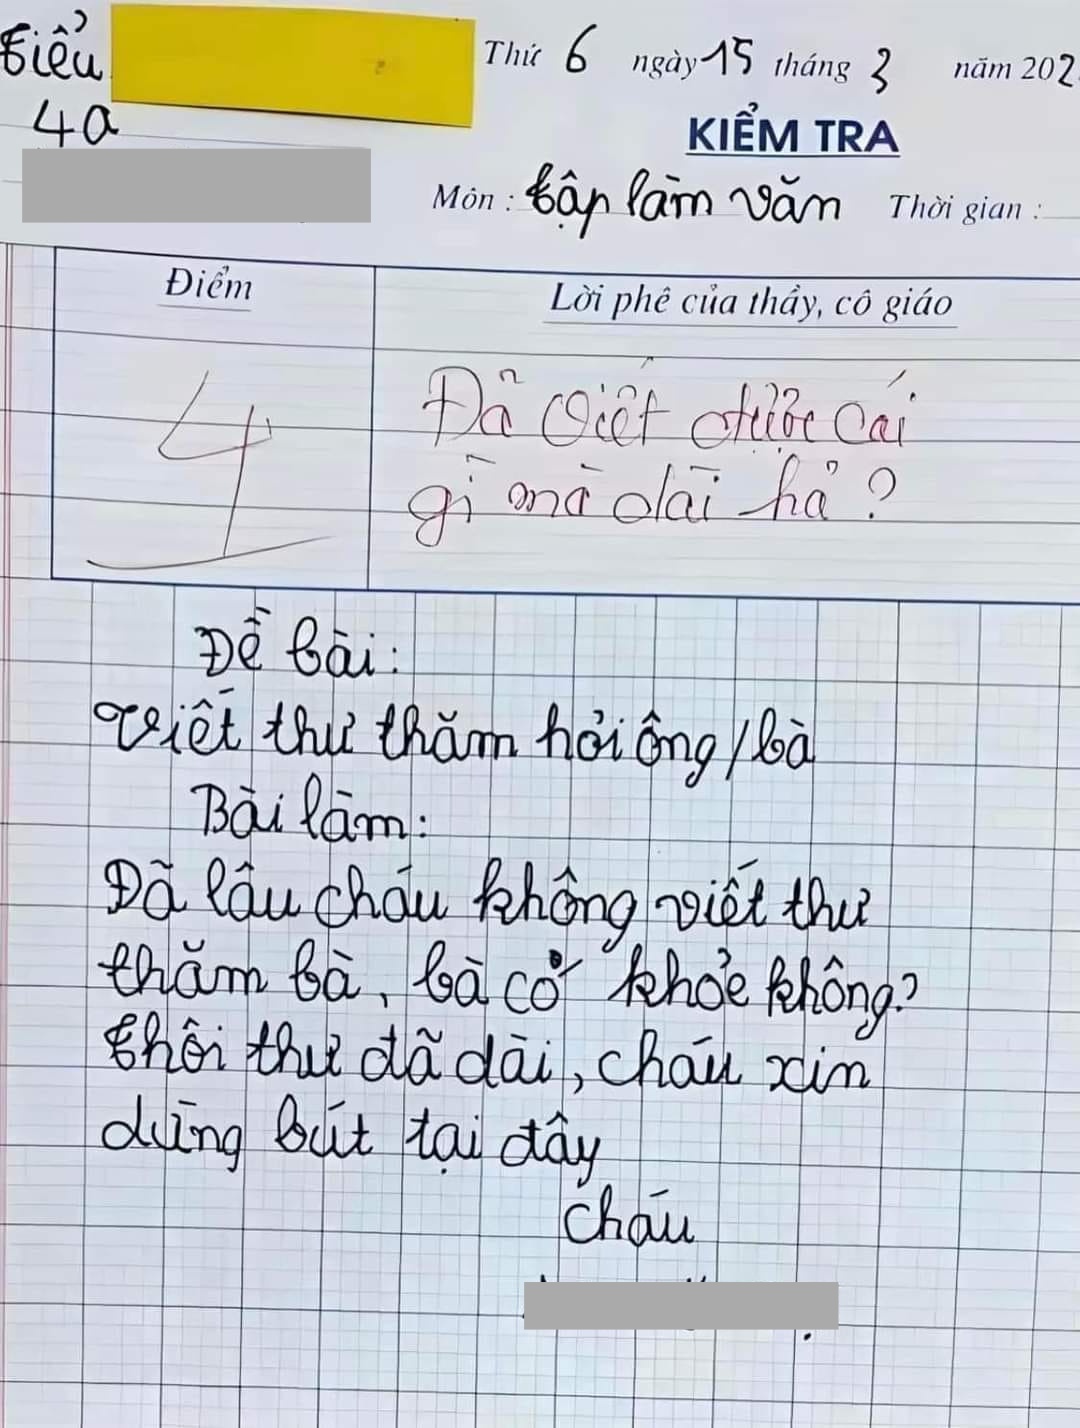 Tiểu
Thứ 6 ngày 15 tháng 3 năm 202
4a
KIỂM TRA
Môn : Tập làm văn Thời gian :
Điểm
Lời phê của thầy, cô giáo
4
Đã viết được cái
gì mà dài hả ?
Đề bài:
Viết thư thăm hỏi ông/bà
Bài làm:
Đã lâu cháu không viết thư
thăm bà, bà có khỏe không?
Thôi thư đã dài, cháu xin
dừng bút tại đây
Cháu